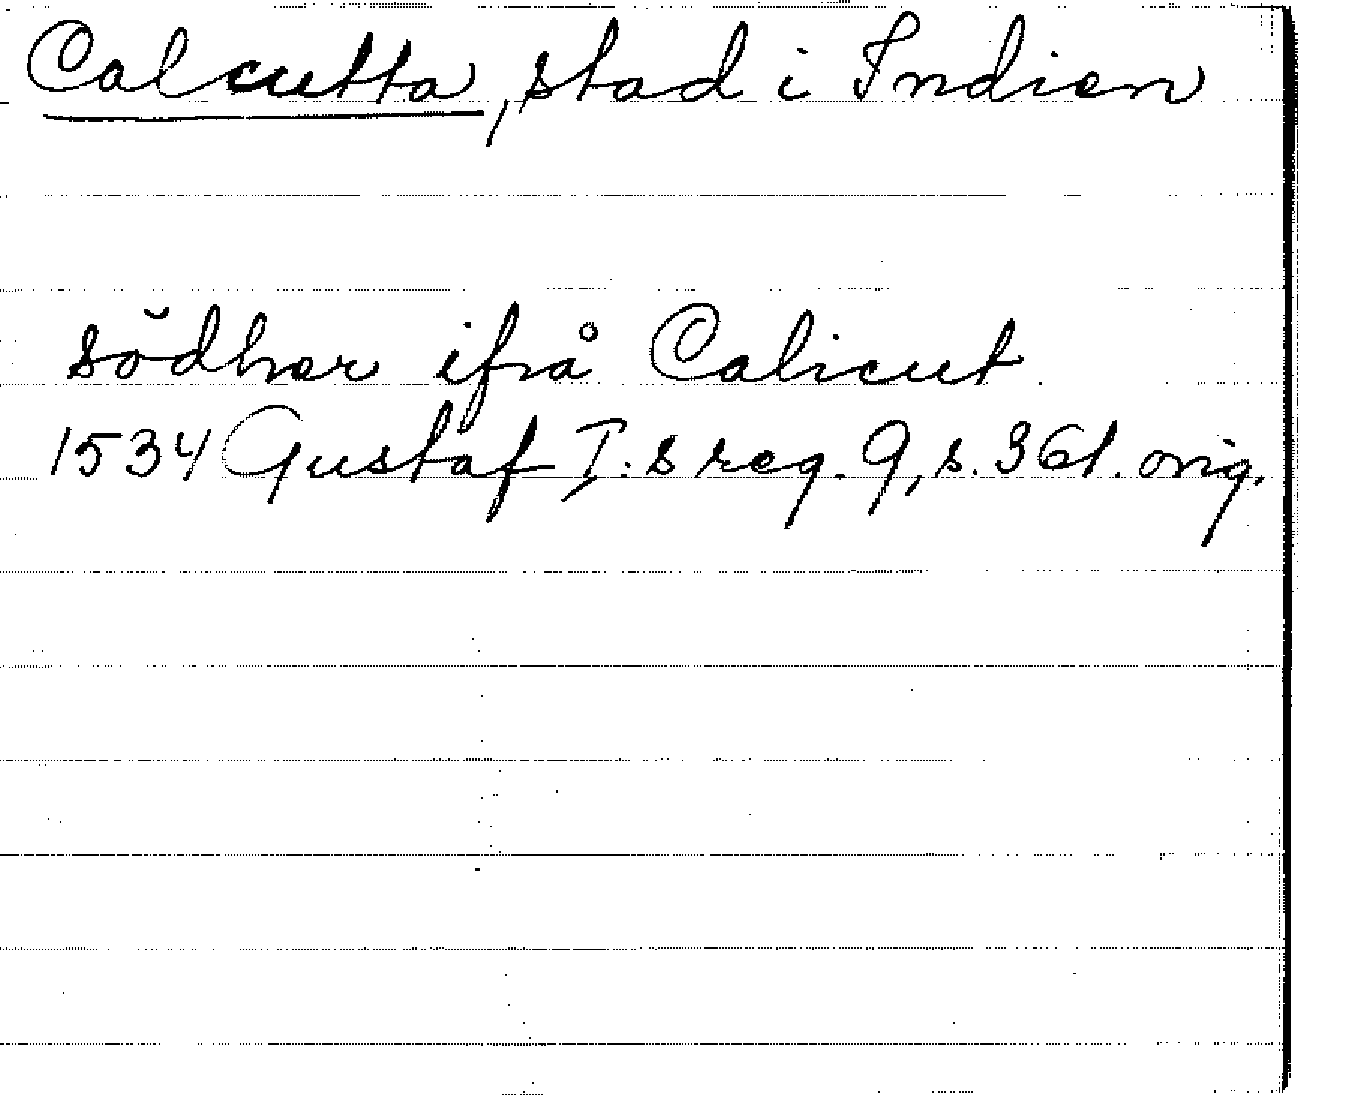 Calcutta, stad i Indien
södher ifrå Calicut
1534 Gustaf I:s reg. 9, s. 361. orig.